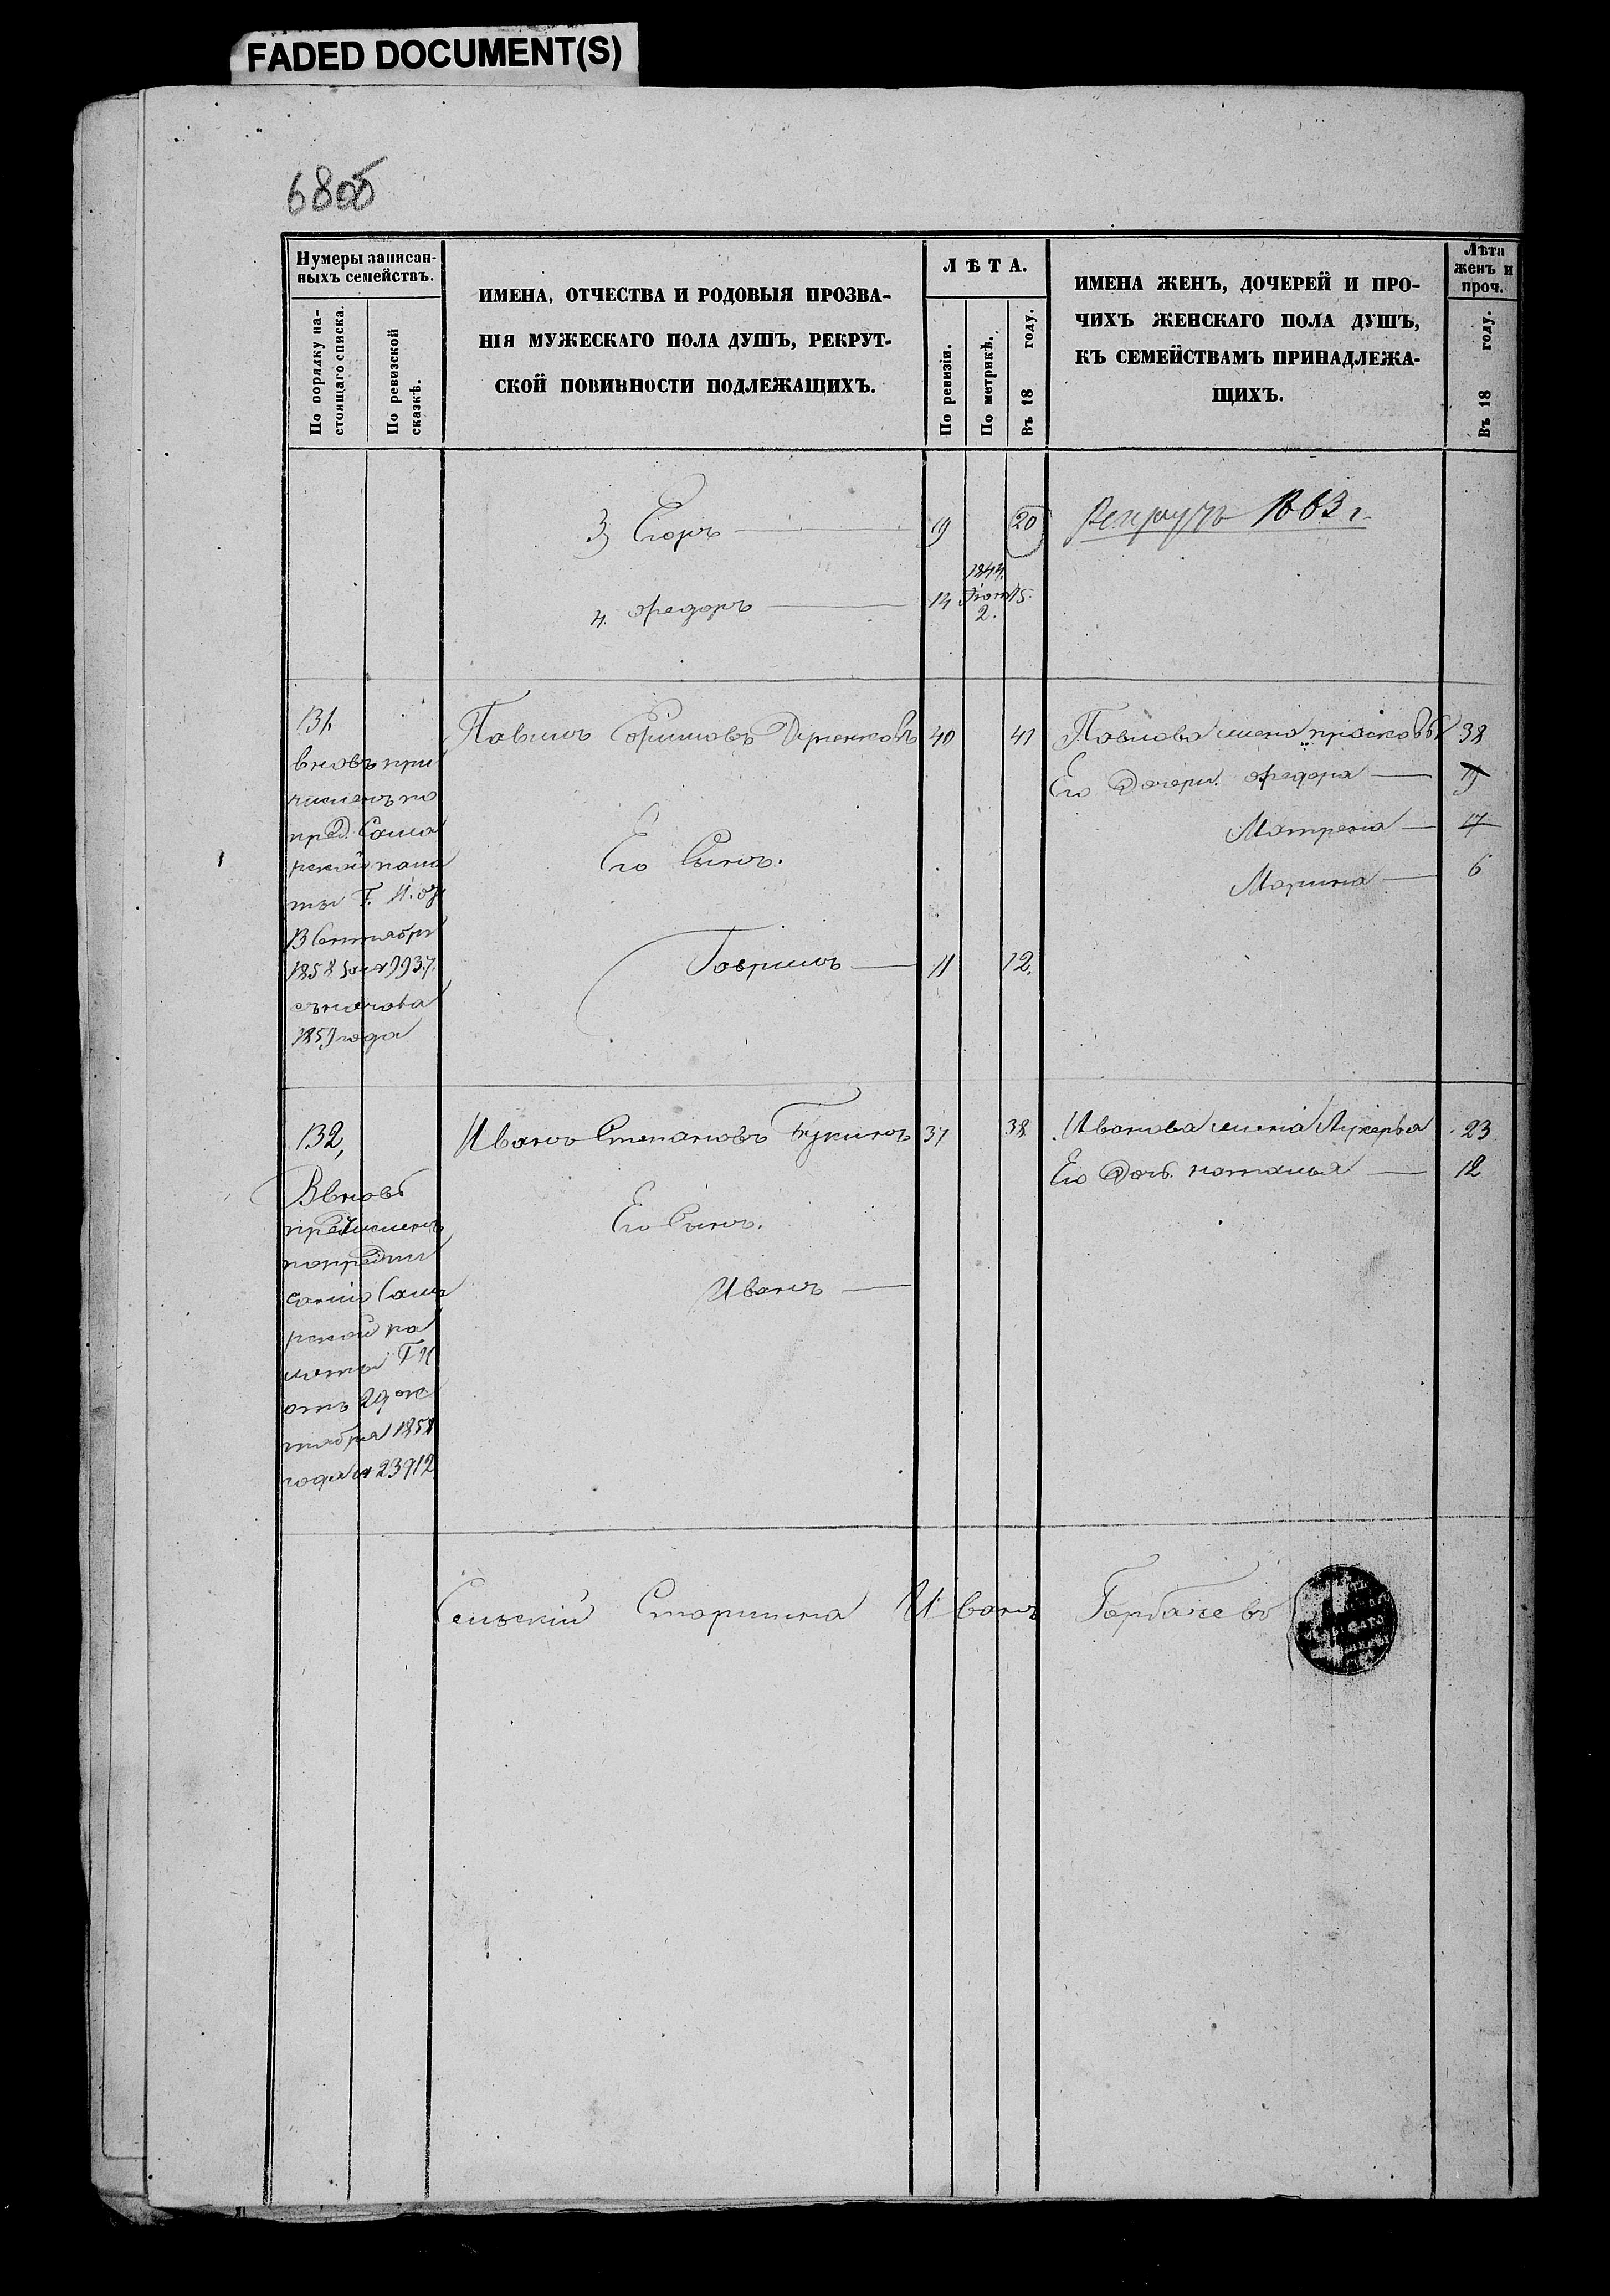 FADED DOCUMENT(S)
68об
Нумеры записан-
ныхъ семействъ.
По порядку на-
стоящаго списка.
По ревизской
сказкѣ.
ИМЕНА, ОТЧЕСТВА И РОДОВЫЯ ПРОЗВА-
НІЯ МУЖЕСКАГО ПОЛА ДУШЪ, РЕКРУТ-
СКОЙ ПОВИННОСТИ ПОДЛЕЖАЩИХЪ.
ЛѢТА.
По ревизіи.
По метрикѣ.
Въ 18 году.
ИМЕНА ЖЕНЪ, ДОЧЕРЕЙ И ПРО-
ЧИХЪ ЖЕНСКАГО ПОЛА ДУШЪ,
КЪ СЕМЕЙСТВАМЪ ПРИНАДЛЕЖА-
ЩИХЪ.
Лѣта
женъ и
проч.
Въ 18 году.
3) Егоръ 19 20 Рекрутъ 1863 г.
4. Федоръ 14 1844. 15.
2.
131.
вновь при
численъ по
пред. Сама
рской пала
ты Г. И. от
13 Сентября
1858 года № 9937.
съ начала
1859 года
Павелъ Ефимовъ 40 41 Павлова жена Прасковья 38
Его дочери. Федора 19
Матрена 17
Марина 6
Его Сынъ.
Гаврилъ 11 12.
132,
Вновь
причисленъ
по предпи
санію Сама
рской па
латы Г И
отъ 29 ок
тября 1858
года № 23912
Иванъ Степановъ 37 38 Иванова жена Лукерья 23
Его дочь. Наталья 12
Его Сынъ.
Иванъ
Сельскій Старшина Иванъ Горбачевъ